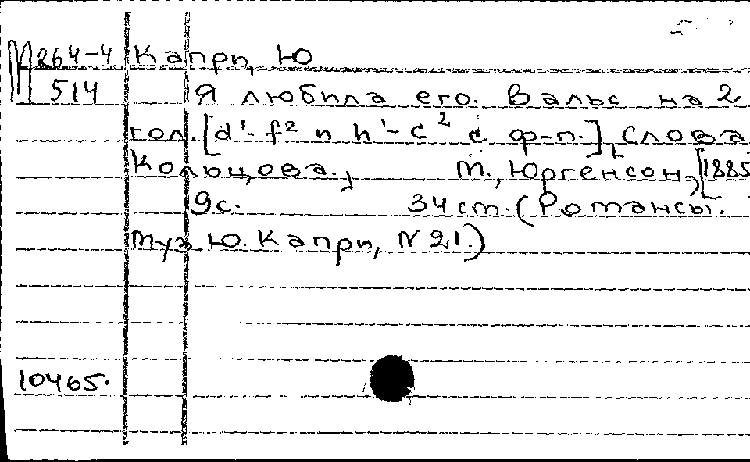 М264-4 Капри, Ю
514 Я любила его. Вальс на 2
гол. [d¹-f² и h¹-c² с ф-п.], Слова
Кольцова., М., Юргенсон, [1885
9с. 34 ст. (Романсы.
Муз. Ю. Капри, N 21.)
10465.